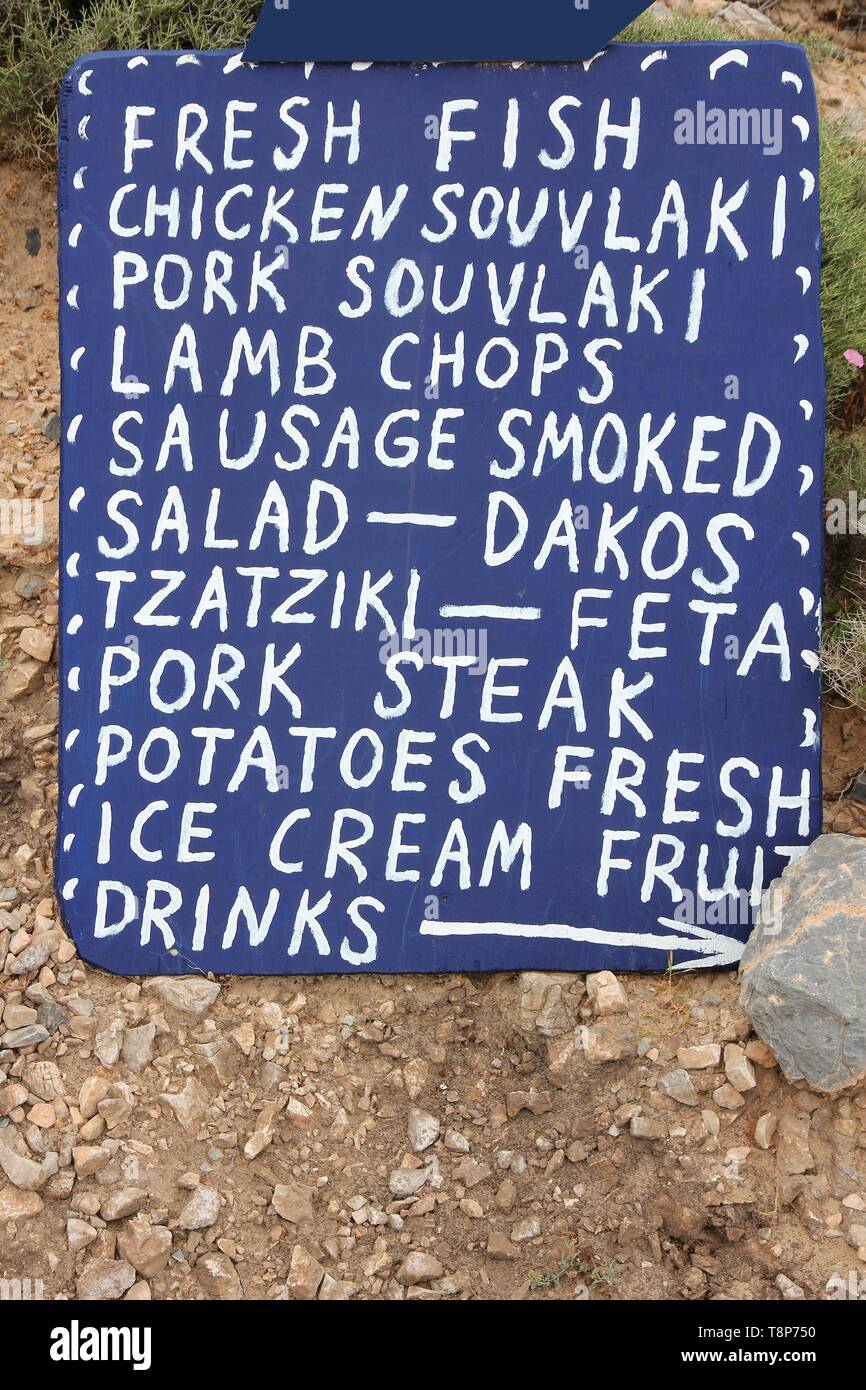 FRESH FISH
CHICKEN SOUVLAKI
PORK SOUVLAKI
LAMB CHOPS
SAUSAGE SMOKED
SALAD — DAKOS
TZATZIKI — FETA
PORK STEAK
POTATOES FRESH
ICE CREAM FRUIT
DRINKS
alamy
Image ID: T8P750
www.alamy.com